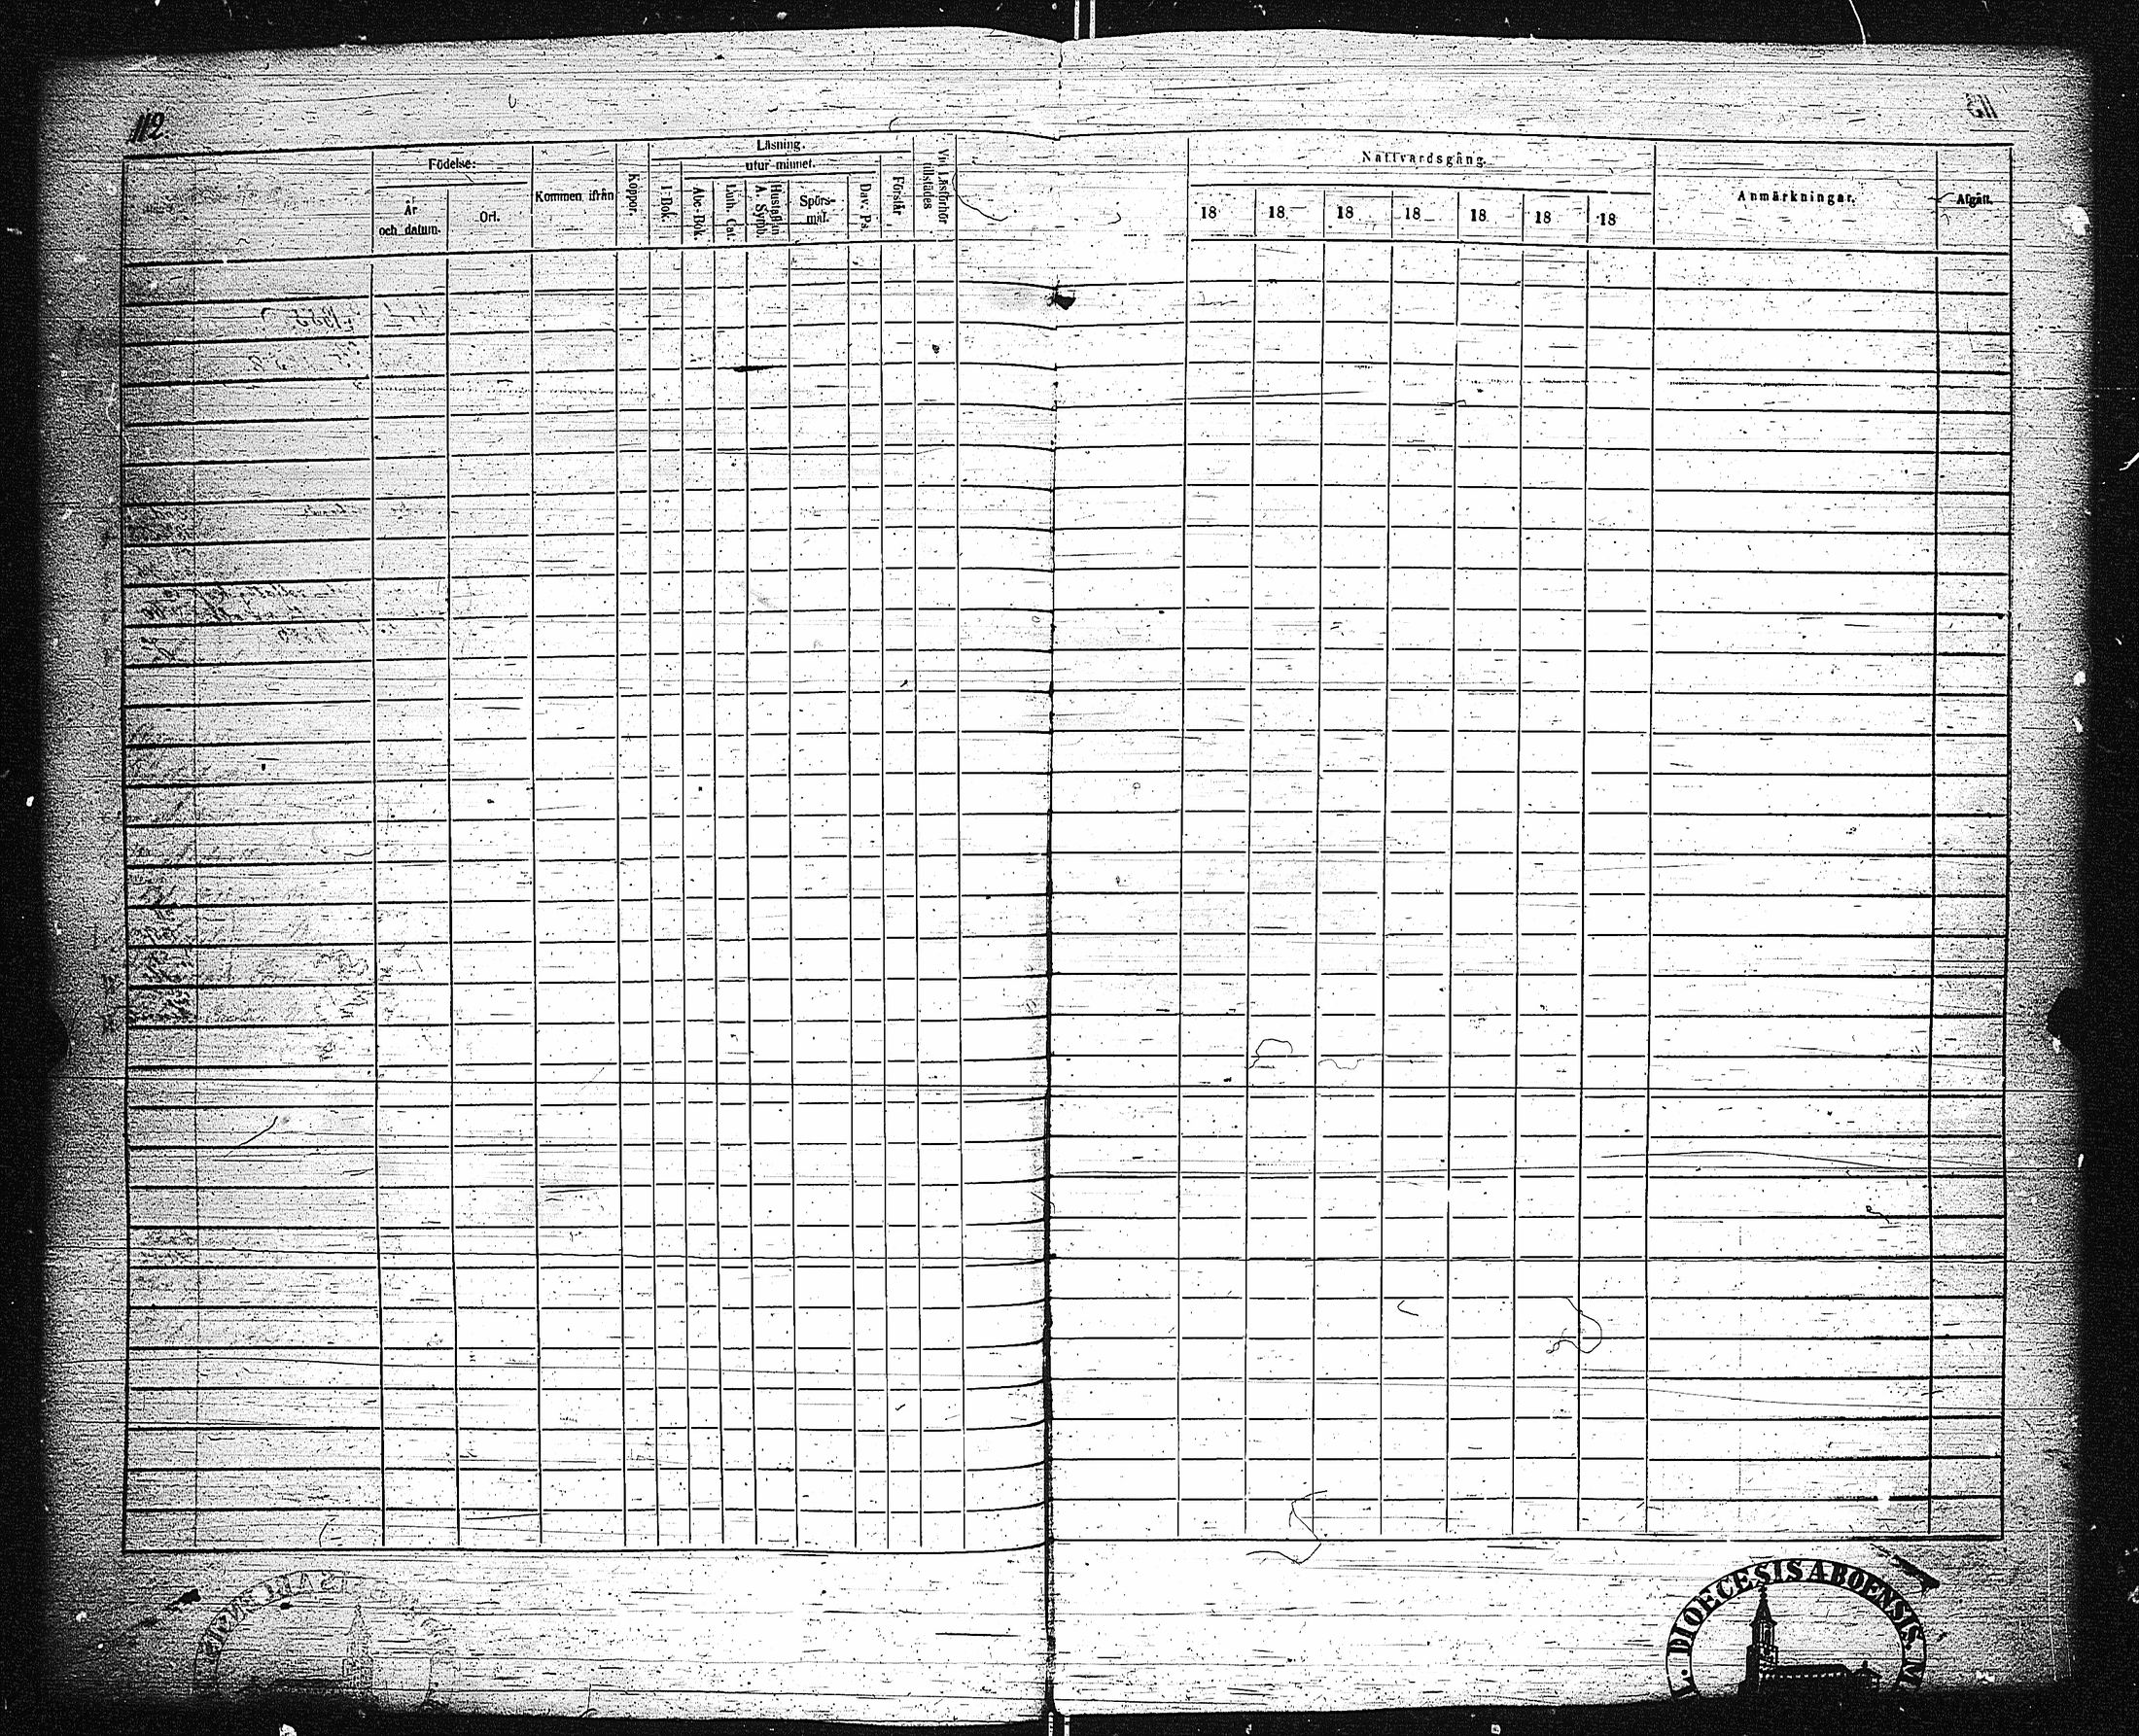 112
Födelse:
År och datum.
Ort.
Kommen ifrån
Koppor.
Läsning.
utur minnet.
I-Bok.
Abc-Bok.
Luth. Cat:
Hustaflan A. Symb.
Spörs-mål.
Dav: Ps.
Förstår
Vid Läsförhör tillstädes
Nattvardsgång.
18 18 18 18 18 18 18
Anmärkningar.
Afgått.
DIOECESIS ABOENSIS